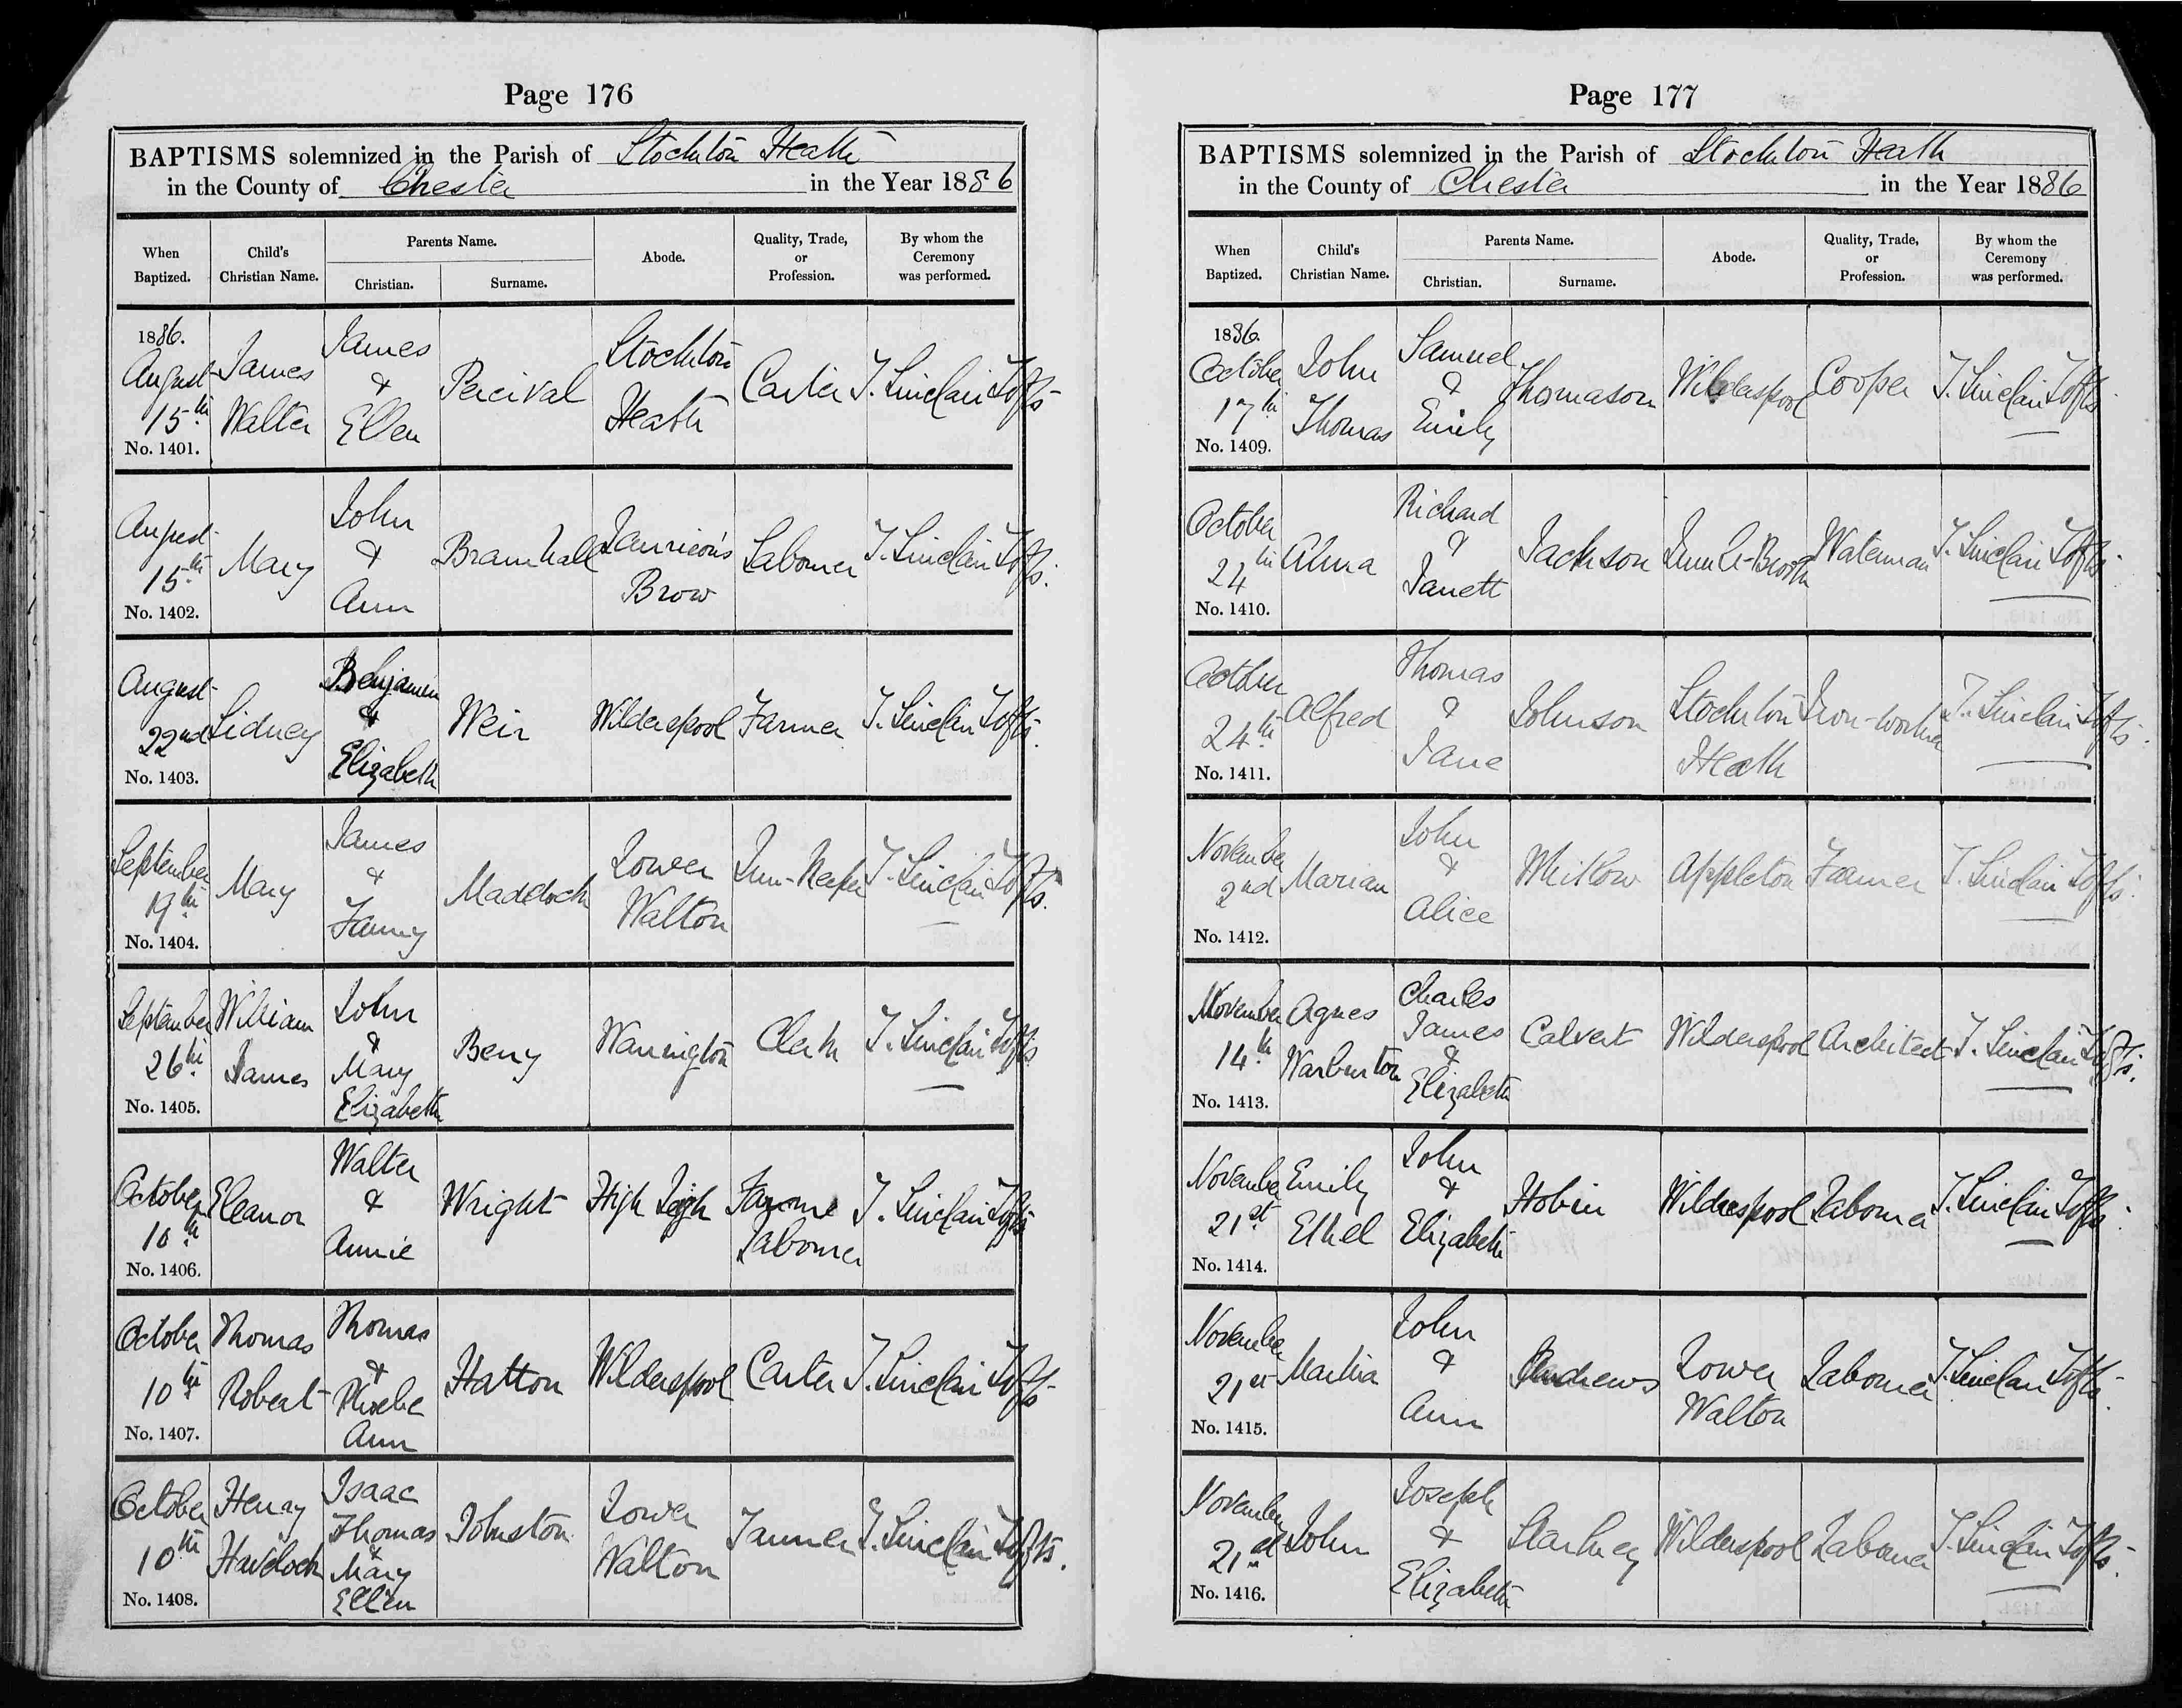 Page 176
BAPTISMS solemnized in the Parish of Stockton Heath
in the County of Chester in the Year 1886
When Baptized. Child's Christian Name. Parents Name. Christian. Surname. Abode. Quality, Trade, or Profession. By whom the Ceremony was performed.
1886. August 15th James Walter James & Ellen Percival Stockton Heath Carter T. Sinclair Tofts
No. 1401.
August 15th Mary John & Ann Bramhall Brow Labourer T. Sinclair Tofts.
No. 1402.
August 22nd Sidney Benjamin & Elizabeth Weir Wilderspool Farmer T. Sinclair Tofts.
No. 1403.
September 19th Mary James & Fanny Maddock Lower Walton Inn-Keeper T. Sinclair Tofts.
No. 1404.
September 26th William James John & Mary Elizabeth Berry Warrington Clerk T. Sinclair Tofts
No. 1405.
October 10th Eleanor Walter & Annie Wright High Legh Labourer T. Sinclair Tofts
No. 1406.
October 10th Thomas Robert Thomas & Phoebe Ann Hatton Wilderspool Carter T. Sinclair Tofts
No. 1407.
October 10th Henry Havelock Isaac Thomas & Mary Ellen Johnston Lower Walton Tanner T. Sinclair Tofts.
No. 1408.
Page 177
BAPTISMS solemnized in the Parish of Stockton Heath
in the County of Chester in the Year 1886
When Baptized. Child's Christian Name. Parents Name. Christian. Surname. Abode. Quality, Trade, or Profession. By whom the Ceremony was performed.
1886. October 17th John Thomas Samuel & Emily Thomason Wilderspool Cooper T. Sinclair Tofts
No. 1409.
October 24th Alma Richard & Janett Jackson Waterman T. Sinclair Tofts
No. 1410.
October 24th Alfred Thomas & Jane Johnson Stockton Heath Iron-worker T. Sinclair Tofts.
No. 1411.
November 2nd Marian John & Alice Appleton Farmer T. Sinclair Tofts.
No. 1412.
November 14th Agnes Warburton Charles James & Elizabeth Calvert Wilderspool Architect T. Sinclair Tofts.
No. 1413.
November 21st Emily Ethel John & Elizabeth Hobin Wilderspool Labourer T. Sinclair Tofts.
No. 1414.
November 21st Martha John & Ann Andrews Lower Walton Labourer T. Sinclair Tofts.
No. 1415.
November 21st John Joseph & Elizabeth Starkey Wilderspool Labourer T. Sinclair Tofts.
No. 1416.